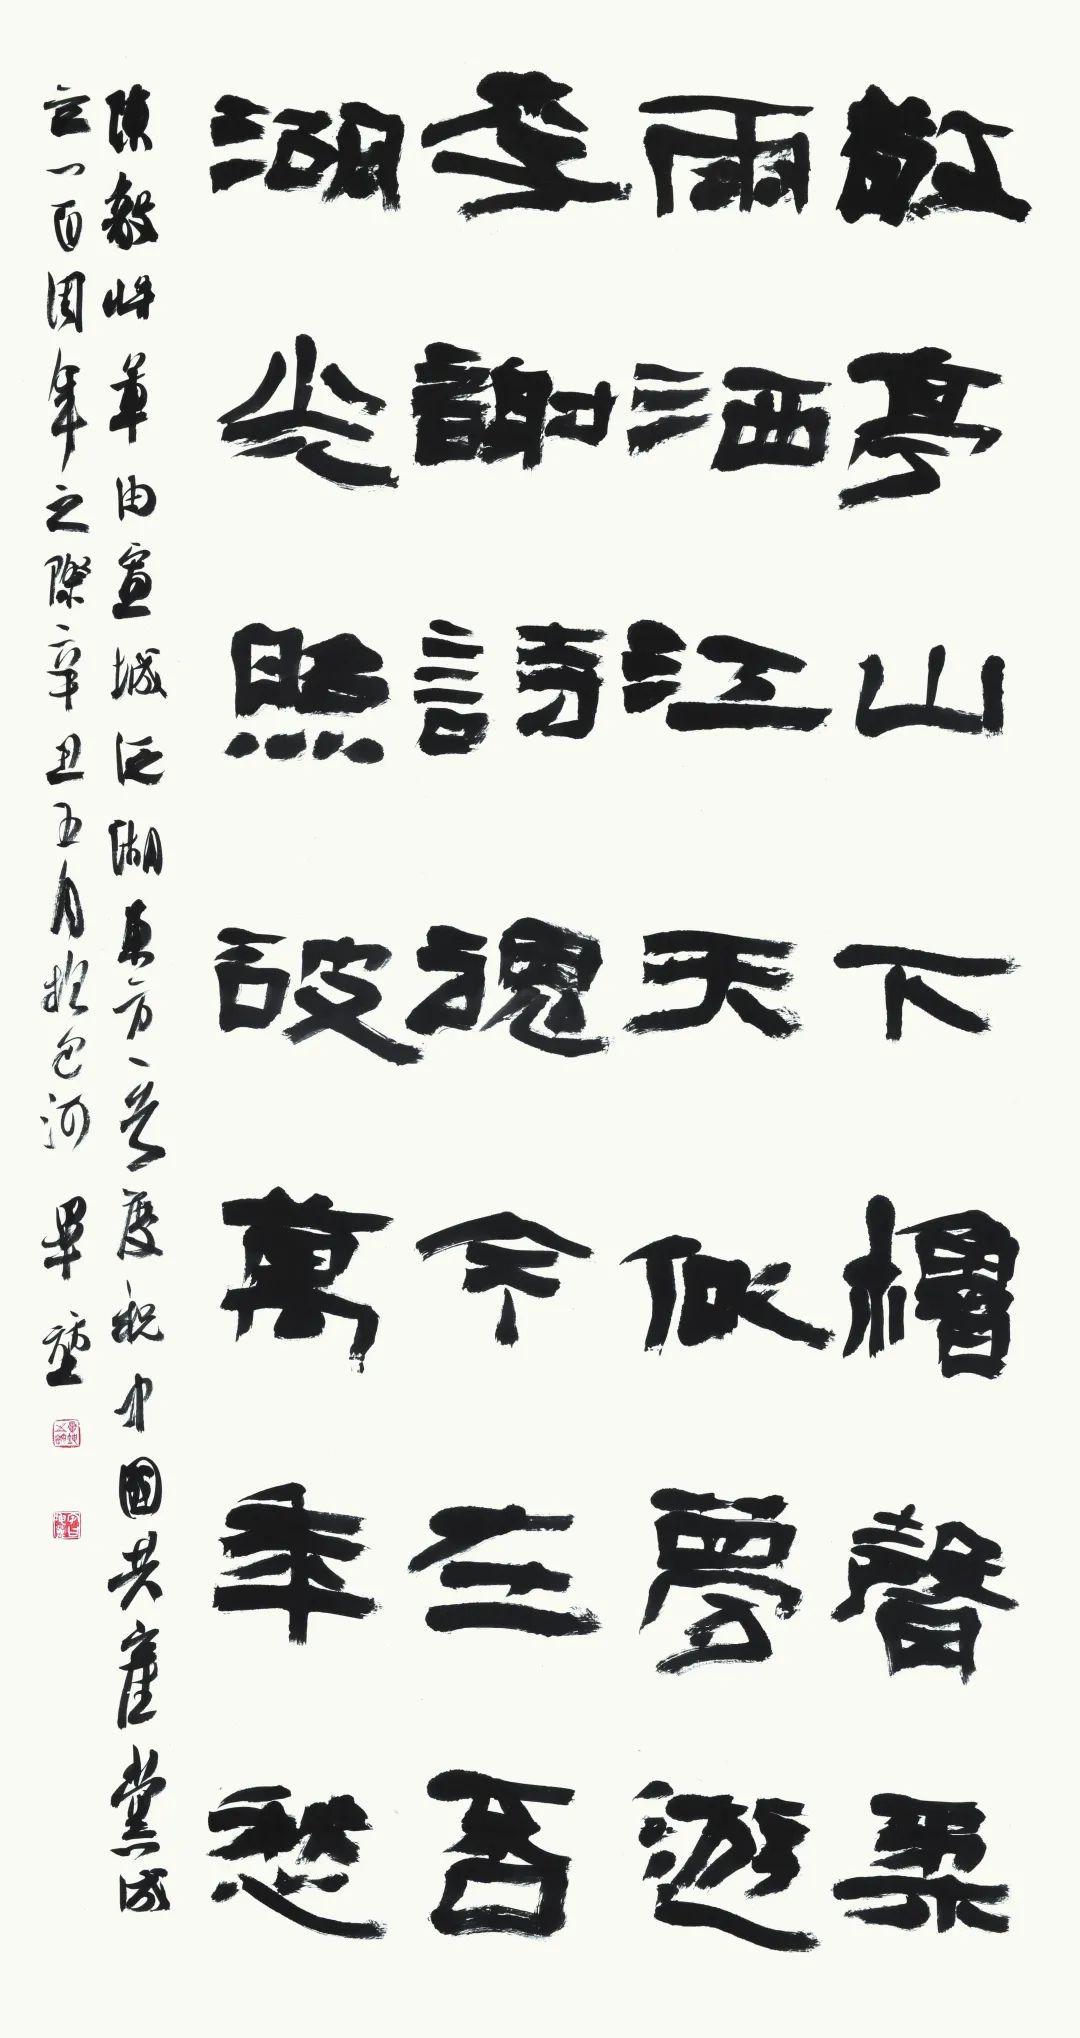 敬亭山下櫓聲柔
雨洒江天似夢遊
李謝詩魂今在否
湖光照破萬年愁
陳毅將軍由宣城泛湖東方一首慶祝中國共產黨成
立一百周年之際辛丑五月於包河